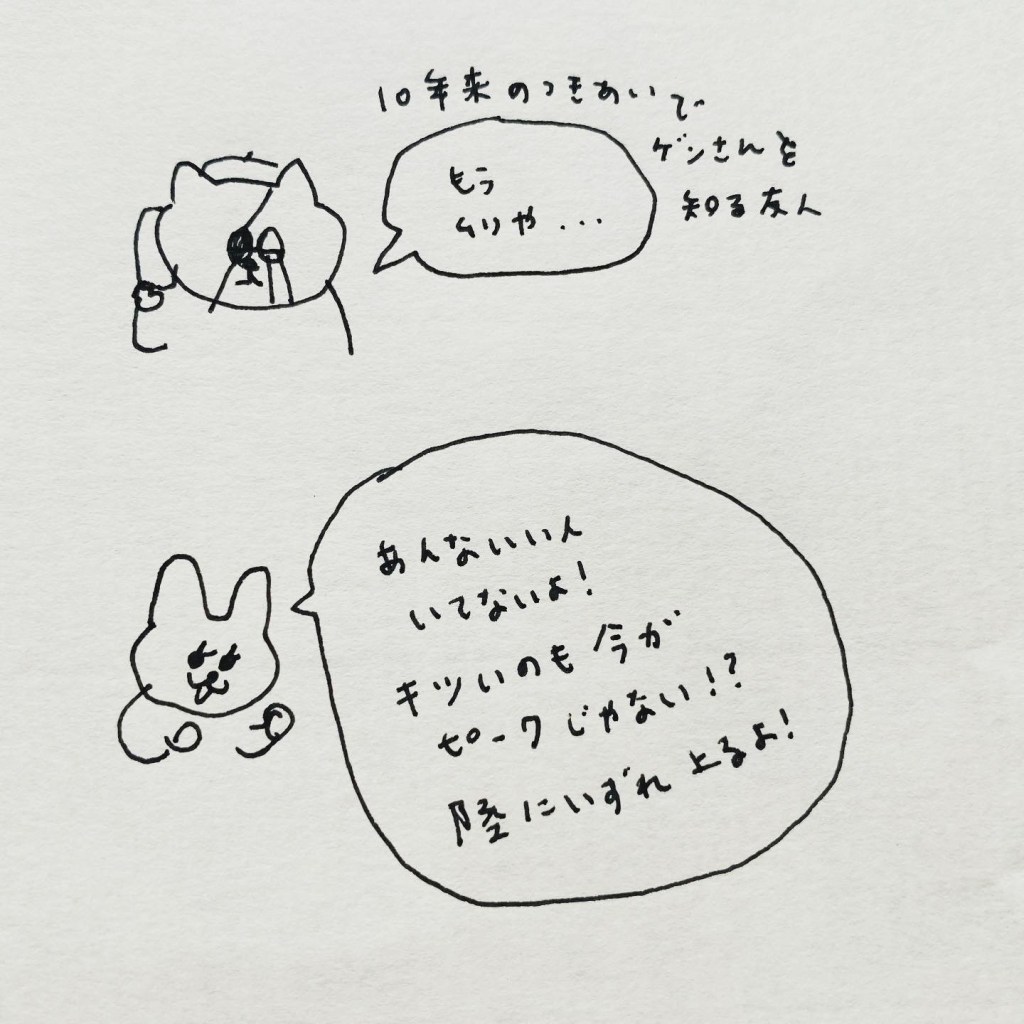 10年来のつきあいで
ゲンさんを
知る友人
もう
ムリや...
あんないい人
いてないよ!
キツいのも今が
ピークじゃない!?
陸にいずれ上るよ!